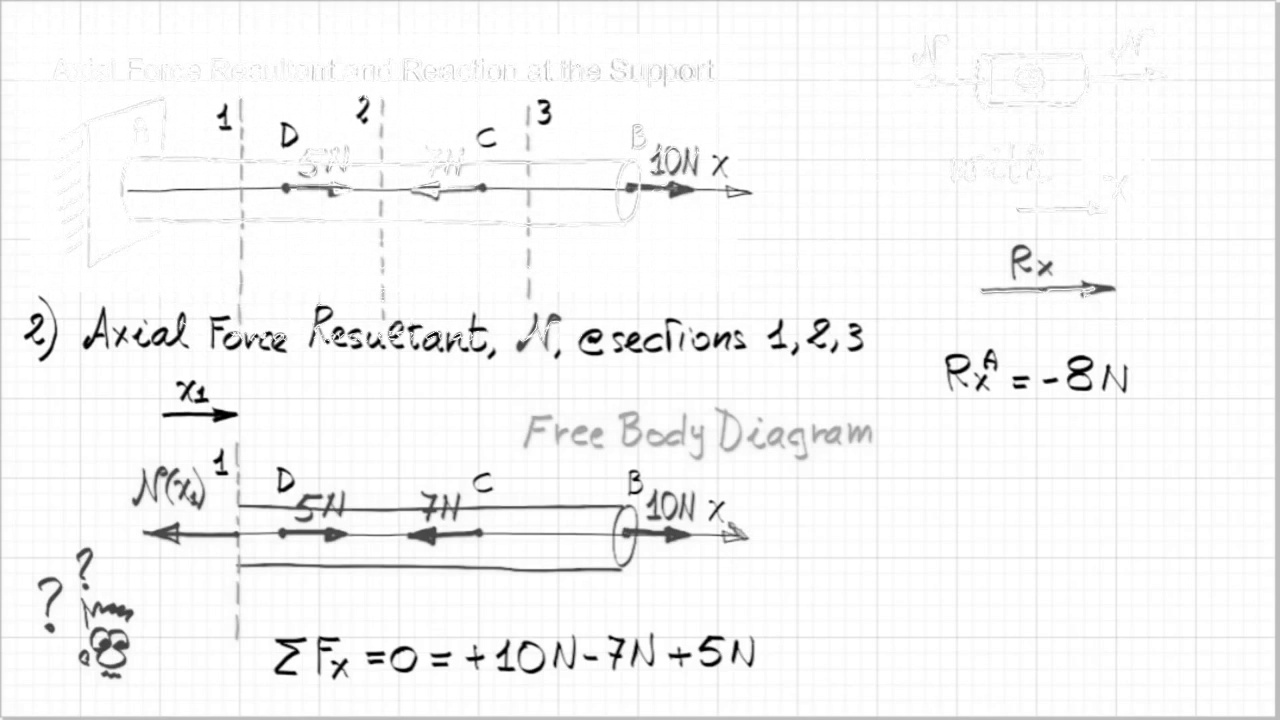 Axial Force Resultant and Reaction at the Support
N N
1 2 3
A D 5N 7N C B 10N x
with x
Rx
2) Axial Force Resultant, N, @sections 1,2,3
RxA = -8N
x1
Free Body Diagram
1
N(x1) D 5N 7N C B 10N x
? ?
ΣFx = 0 = +10N-7N+5N